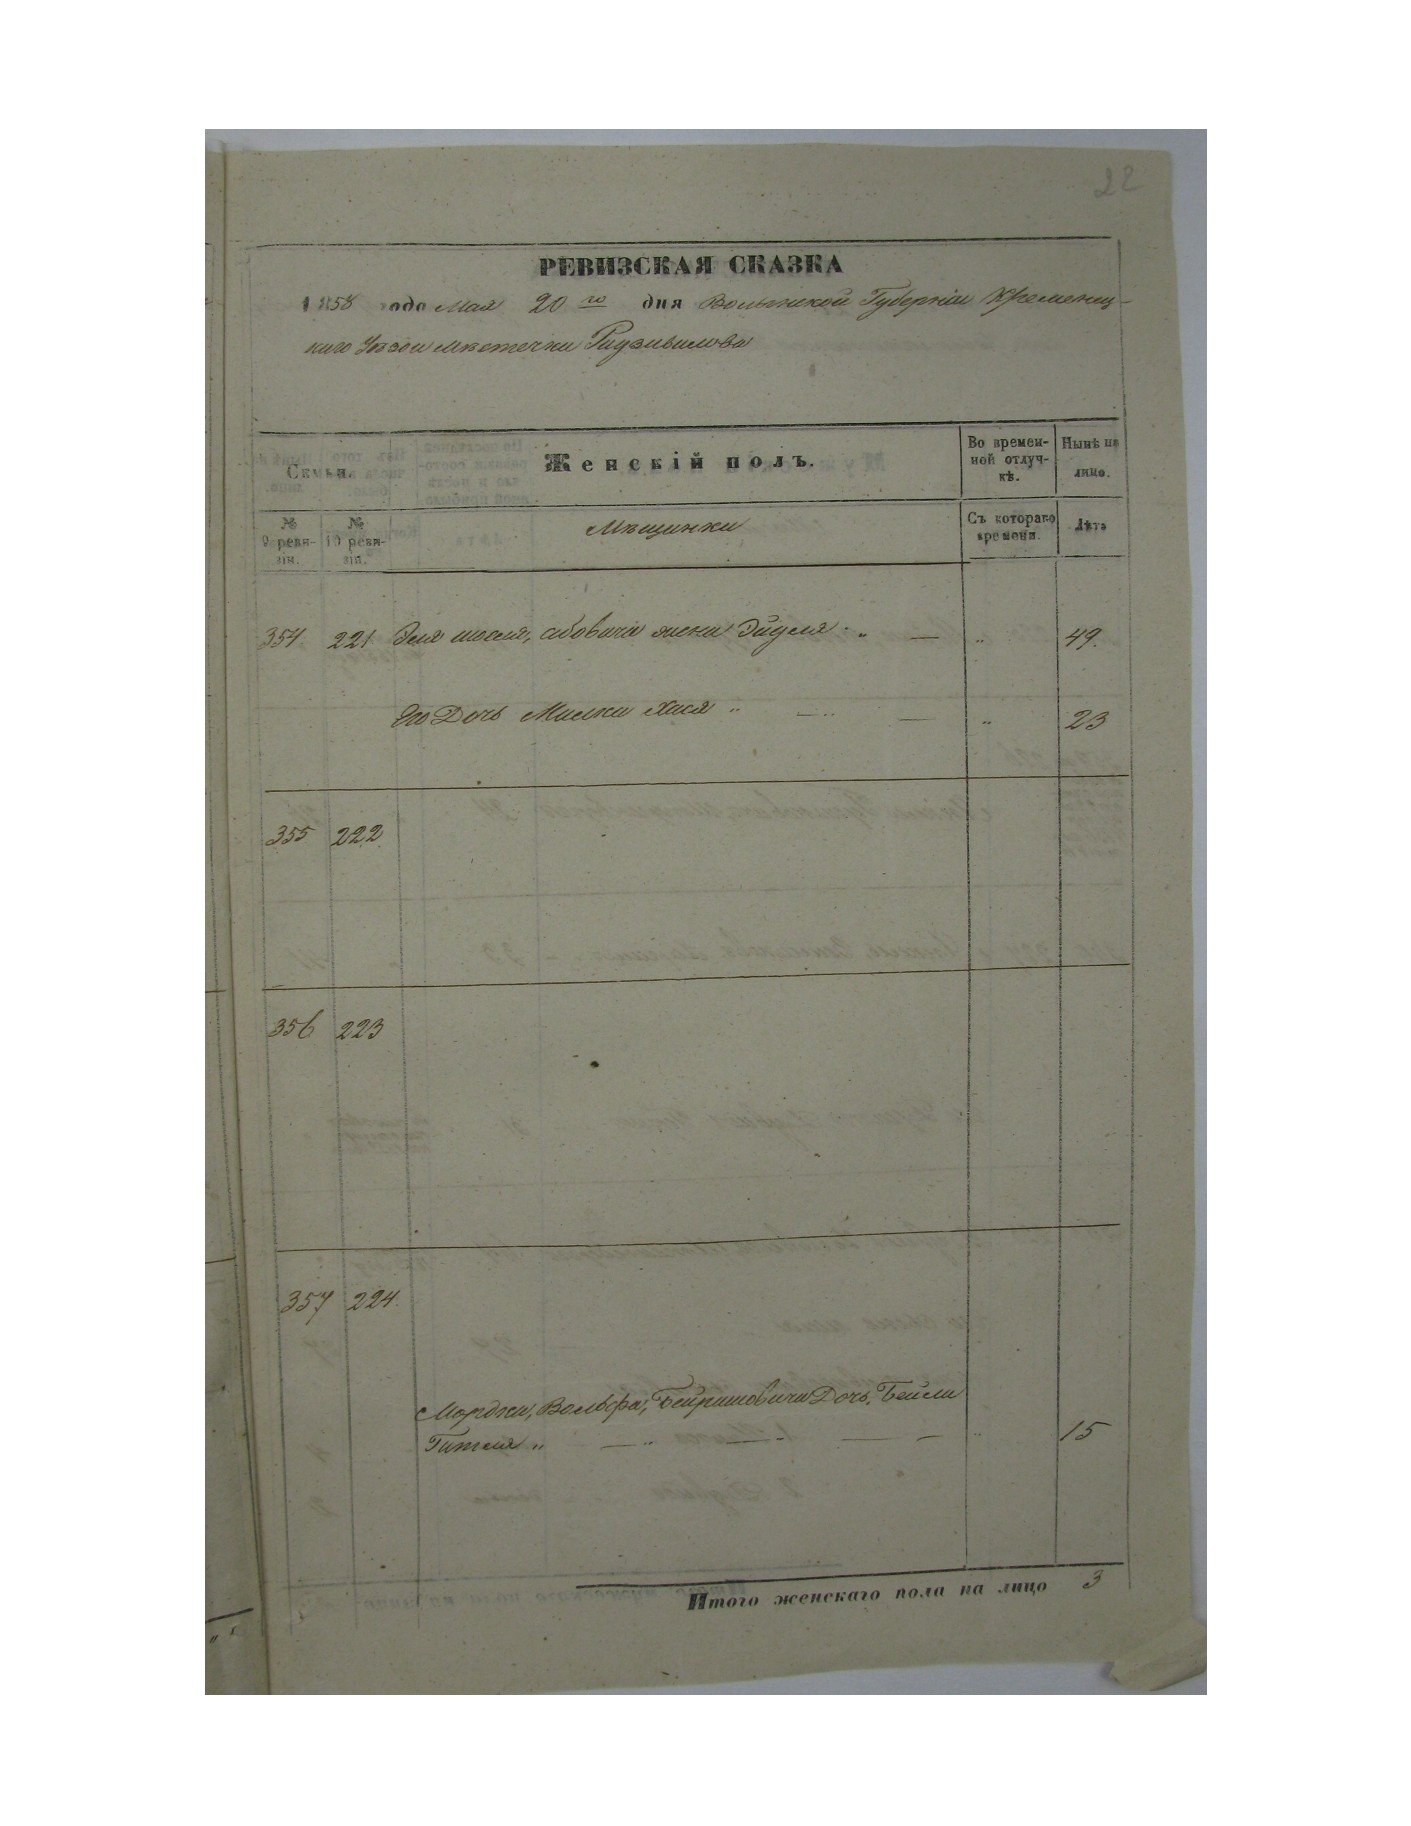 22
РЕВИЗСКАЯ СКАЗКА
1858 года Мая 20го дня Волынской Губерніи Кременец-
каго Уѣзда мѣстечка Радзивилова
Семьи. Женскій полъ. Во времен-ной отлуч-кѣ. Нынѣ на лицо.
№ 9 реви-зіи. № 10 реви-зіи. Мѣщанки Съ котораго времени. Лѣта
354 221 жена Эйдля „ — „ 49.
Его Дочь Малка Хася „ — „ — „ 23
355 222
356 223
357 224.
Мордка, Вольфа, Дочь, Бейла
Гитля „ — „ — — — „ 15
Итого женскаго пола на лицо 3